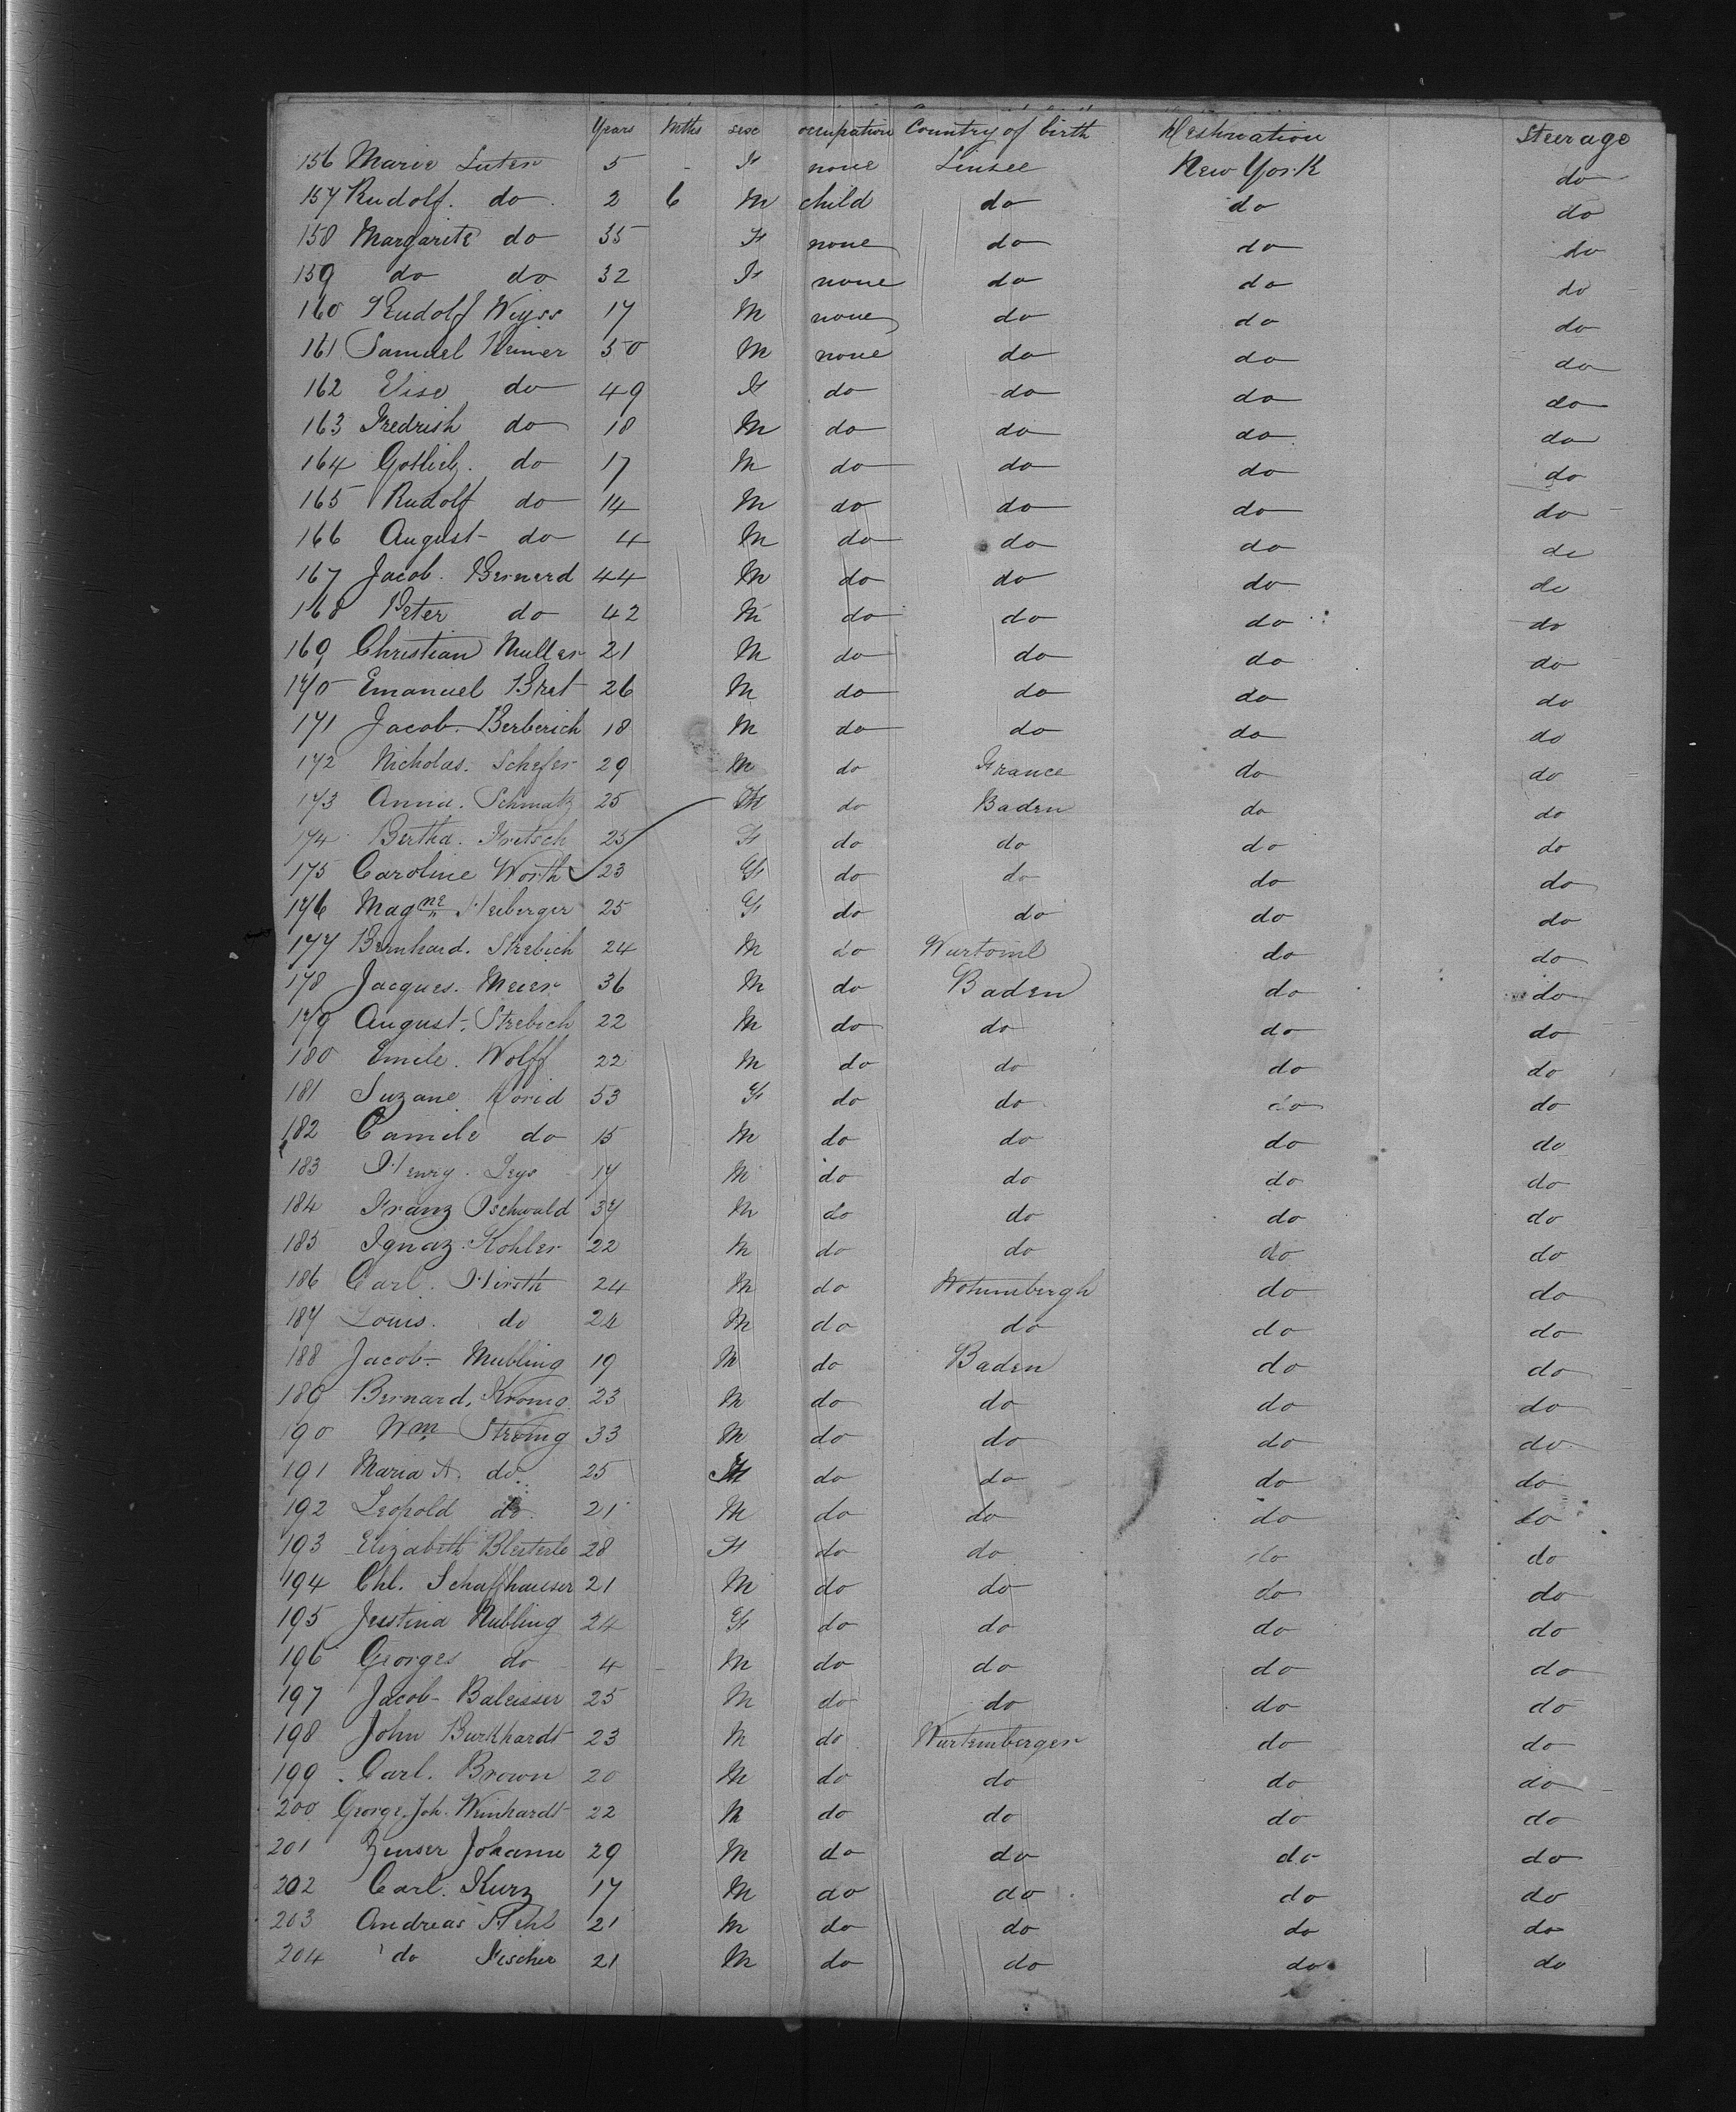 Years Mths sex occupation Country of birth Destination Steerage
156 Marie Luter 5 - F none New York do
157 Rudolf. do 2 6 M child do do do
158 Margarite do 35 F none do do do
159 do do 32 F none do do do
160 Rudolf Wyss 17 M none do do do
161 Samuel 50 M none do do do
162 Elise do 49 F do do do do
163 Fredrish do 18 M do do do do
164 Gotlieb. do 17 M do do do do
165 Rudolf do 14 M do do do do
166 August do 4 M do do do do
167 Jacob. Bernerd 44 M do do do do
168 Peter do 42 M do do do do
169 Christian Muller 21 M do do do do
170 Emanuel Brat 26 M do do do do
171 Jacob. Berberich 18 M do do do do
172 Nicholas. Schefer 29 M do France do do
173 Anna. Schmatz 25 F do Baden do do
174 Bertha. Fretsch 25 F do do do do
175 Caroline Worth 23 F do do do do
176 Magne Heiberger 25 F do do do do
177 Bernhard. Strebich 24 M do do do
178 Jacques. Meier 36 M do Baden do do
179 August. Strebich 22 M do do do do
180 Emile. Wolff 22 M do do do do
181 Suzane 53 F do do do do
182 Camile do 15 M do do do do
183 Henry. Leys 17 M do do do do
184 Franz Oschwald 37 M do do do do
185 Ignaz. Kohler 22 M do do do do
186 Carl. Hirsth 24 M do do do
187 Louis. do 24 M do do do do
188 Jacob Mubling 19 M do Baden do do
189 Bernard. Kromg 23 M do do do do
190 Wm Stromg 33 M do do do do
191 Maria A. do. 25 F do do do do
192 Leopold do. 21 M do do do do
193 Elizabeth Bleiterle 28 F do do do do
194 Chl. Schaffhauser 21 M do do do do
195 Justina Nubling 24 F do do do do
196 Georges do 4 - M do do do do
197 Jacob Baleisser 25 M do do do do
198 John Burkhardt 23 M do Wurtemberger do do
199 Carl. Brown 20 M do do do do
200 George. Joh. Weinhardt 22 M do do do do
201 Zinser Johann 29 M do do do do
202 Carl. Kurz 17 M do do do do
203 Andreas Stehl 21 M do do do do
204 do Fischer 21 M do do do do